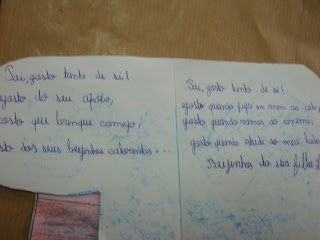 Pai, gosto tanto de si!
gosto do seu apoio,
gosto que brinque comigo,
sto dos seus beijinhos calorosos...
Pai, gosto tanto de si!
gosto quando
gosto quando vamos ao cinema,
gosto quando estudo ao meu lado
Beijinhos da sua filha